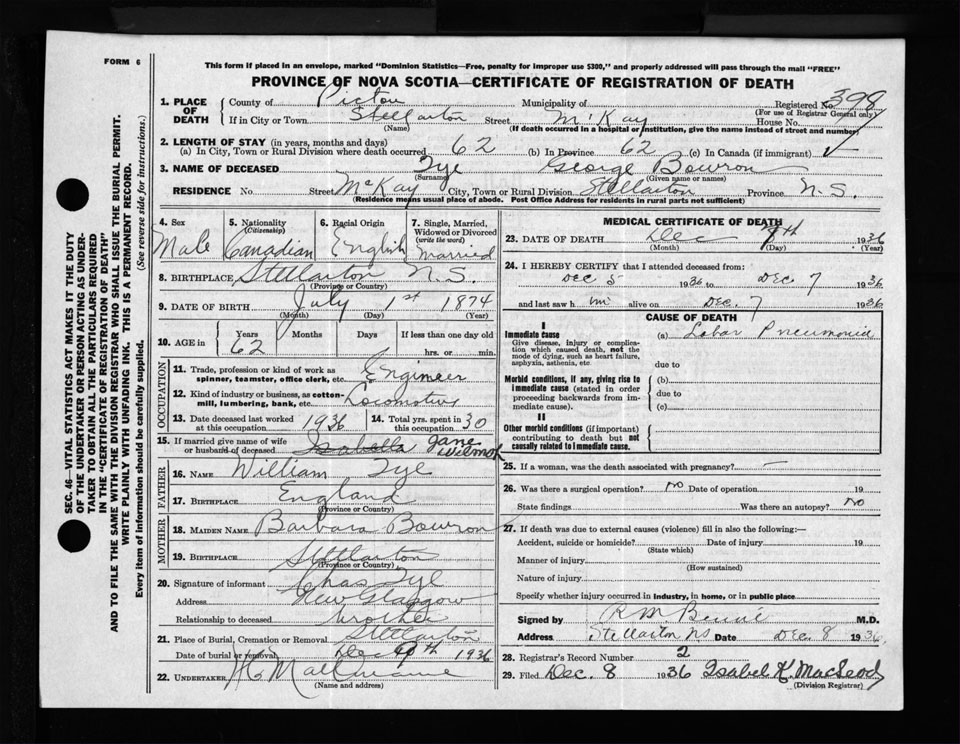 FORM 6
This form if placed in an envelope, marked "Dominion Statistics—Free, penalty for improper use $300," and properly addressed will pass through the mail "FREE"
PROVINCE OF NOVA SCOTIA—CERTIFICATE OF REGISTRATION OF DEATH
1. PLACE OF DEATH County of Pictou Municipality of Registered No. 398
(For use of Registrar General only)
If in City or Town Stellarton Street McKay House No.
(Name) (If death occurred in a hospital or institution, give the name instead of street and number)
2. LENGTH OF STAY (in years, months and days)
(a) In City, Town or Rural Division where death occurred 62 (b) In Province 62 (c) In Canada (if immigrant) ✓
3. NAME OF DECEASED Tye George Bowron
(Surname) (Given name or names)
RESIDENCE No Street McKay City, Town or Rural Division Stellarton Province N.S.
(Residence means usual place of abode. Post Office Address for residents in rural parts not sufficient)
4. Sex Male
5. Nationality (Citizenship) Canadian
6. Racial Origin English
7. Single, Married, Widowed or Divorced (write the word) Married
8. BIRTHPLACE Stellarton N.S.
(Province or Country)
9. DATE OF BIRTH July 1st 1874
(Month) (Day) (Year)
10. AGE in Years 62 Months Days If less than one day old
hrs. or min.
OCCUPATION
11. Trade, profession or kind of work as spinner, teamster, office clerk, etc. Engineer
12. Kind of industry or business, as cotton-mill, lumbering, bank, etc. Locomotive
13. Date deceased last worked at this occupation 1936
14. Total yrs. spent in this occupation 30
15. If married give name of wife or husband of deceased Isabella Jane Wilmot
FATHER
16. NAME William Tye
17. BIRTHPLACE England
(Province or Country)
MOTHER
18. MAIDEN NAME Barbara Bowron
19. BIRTHPLACE Stellarton
(Province or Country)
20. Signature of informant Chas Tye
Address New Glasgow
Relationship to deceased brother
21. Place of Burial, Cremation or Removal Stellarton
Date of burial or removal Dec 9th 1936
22. UNDERTAKER
(Name and address)
MEDICAL CERTIFICATE OF DEATH
23. DATE OF DEATH Dec 7th 1936
(Month) (Day) (Year)
24. I HEREBY CERTIFY that I attended deceased from:
Dec 5 1936 to Dec 7 1936
and last saw him alive on Dec. 7 1936
CAUSE OF DEATH
I
Immediate cause (a) Lobar Pneumonia
Give disease, injury or complication which caused death, not the mode of dying, such as heart failure, asphyxia, asthenia, etc.
due to
Morbid conditions, if any, giving rise to immediate cause (stated in order proceeding backwards from immediate cause).
(b)
due to
(c)
II
Other morbid conditions (if important) contributing to death but not causally related to immediate cause.
25. If a woman, was the death associated with pregnancy? —
26. Was there a surgical operation? No Date of operation 19
State findings Was there an autopsy? No
27. If death was due to external causes (violence) fill in also the following:—
Accident, suicide or homicide? Date of injury 19
(State which)
Manner of injury
(How sustained)
Nature of injury
Specify whether injury occurred in industry, in home, or in public place
Signed by M.D.
Address Stellarton NS Date Dec. 8 1936
28. Registrar's Record Number 2
29. Filed Dec. 8 1936 Isabel K. MacLeod
(Division Registrar)
SEC. 46—VITAL STATISTICS ACT MAKES IT THE DUTY
OF THE UNDERTAKER OR PERSON ACTING AS UNDER-
TAKER TO OBTAIN ALL THE PARTICULARS REQUIRED
IN THE "CERTIFICATE OF REGISTRATION OF DEATH"
AND TO FILE THE SAME WITH THE DIVISION REGISTRAR WHO SHALL ISSUE THE BURIAL PERMIT.
WRITE PLAINLY WITH UNFADING INK. THIS IS A PERMANENT RECORD.
Every item of information should be carefully supplied. (See reverse side for instructions.)